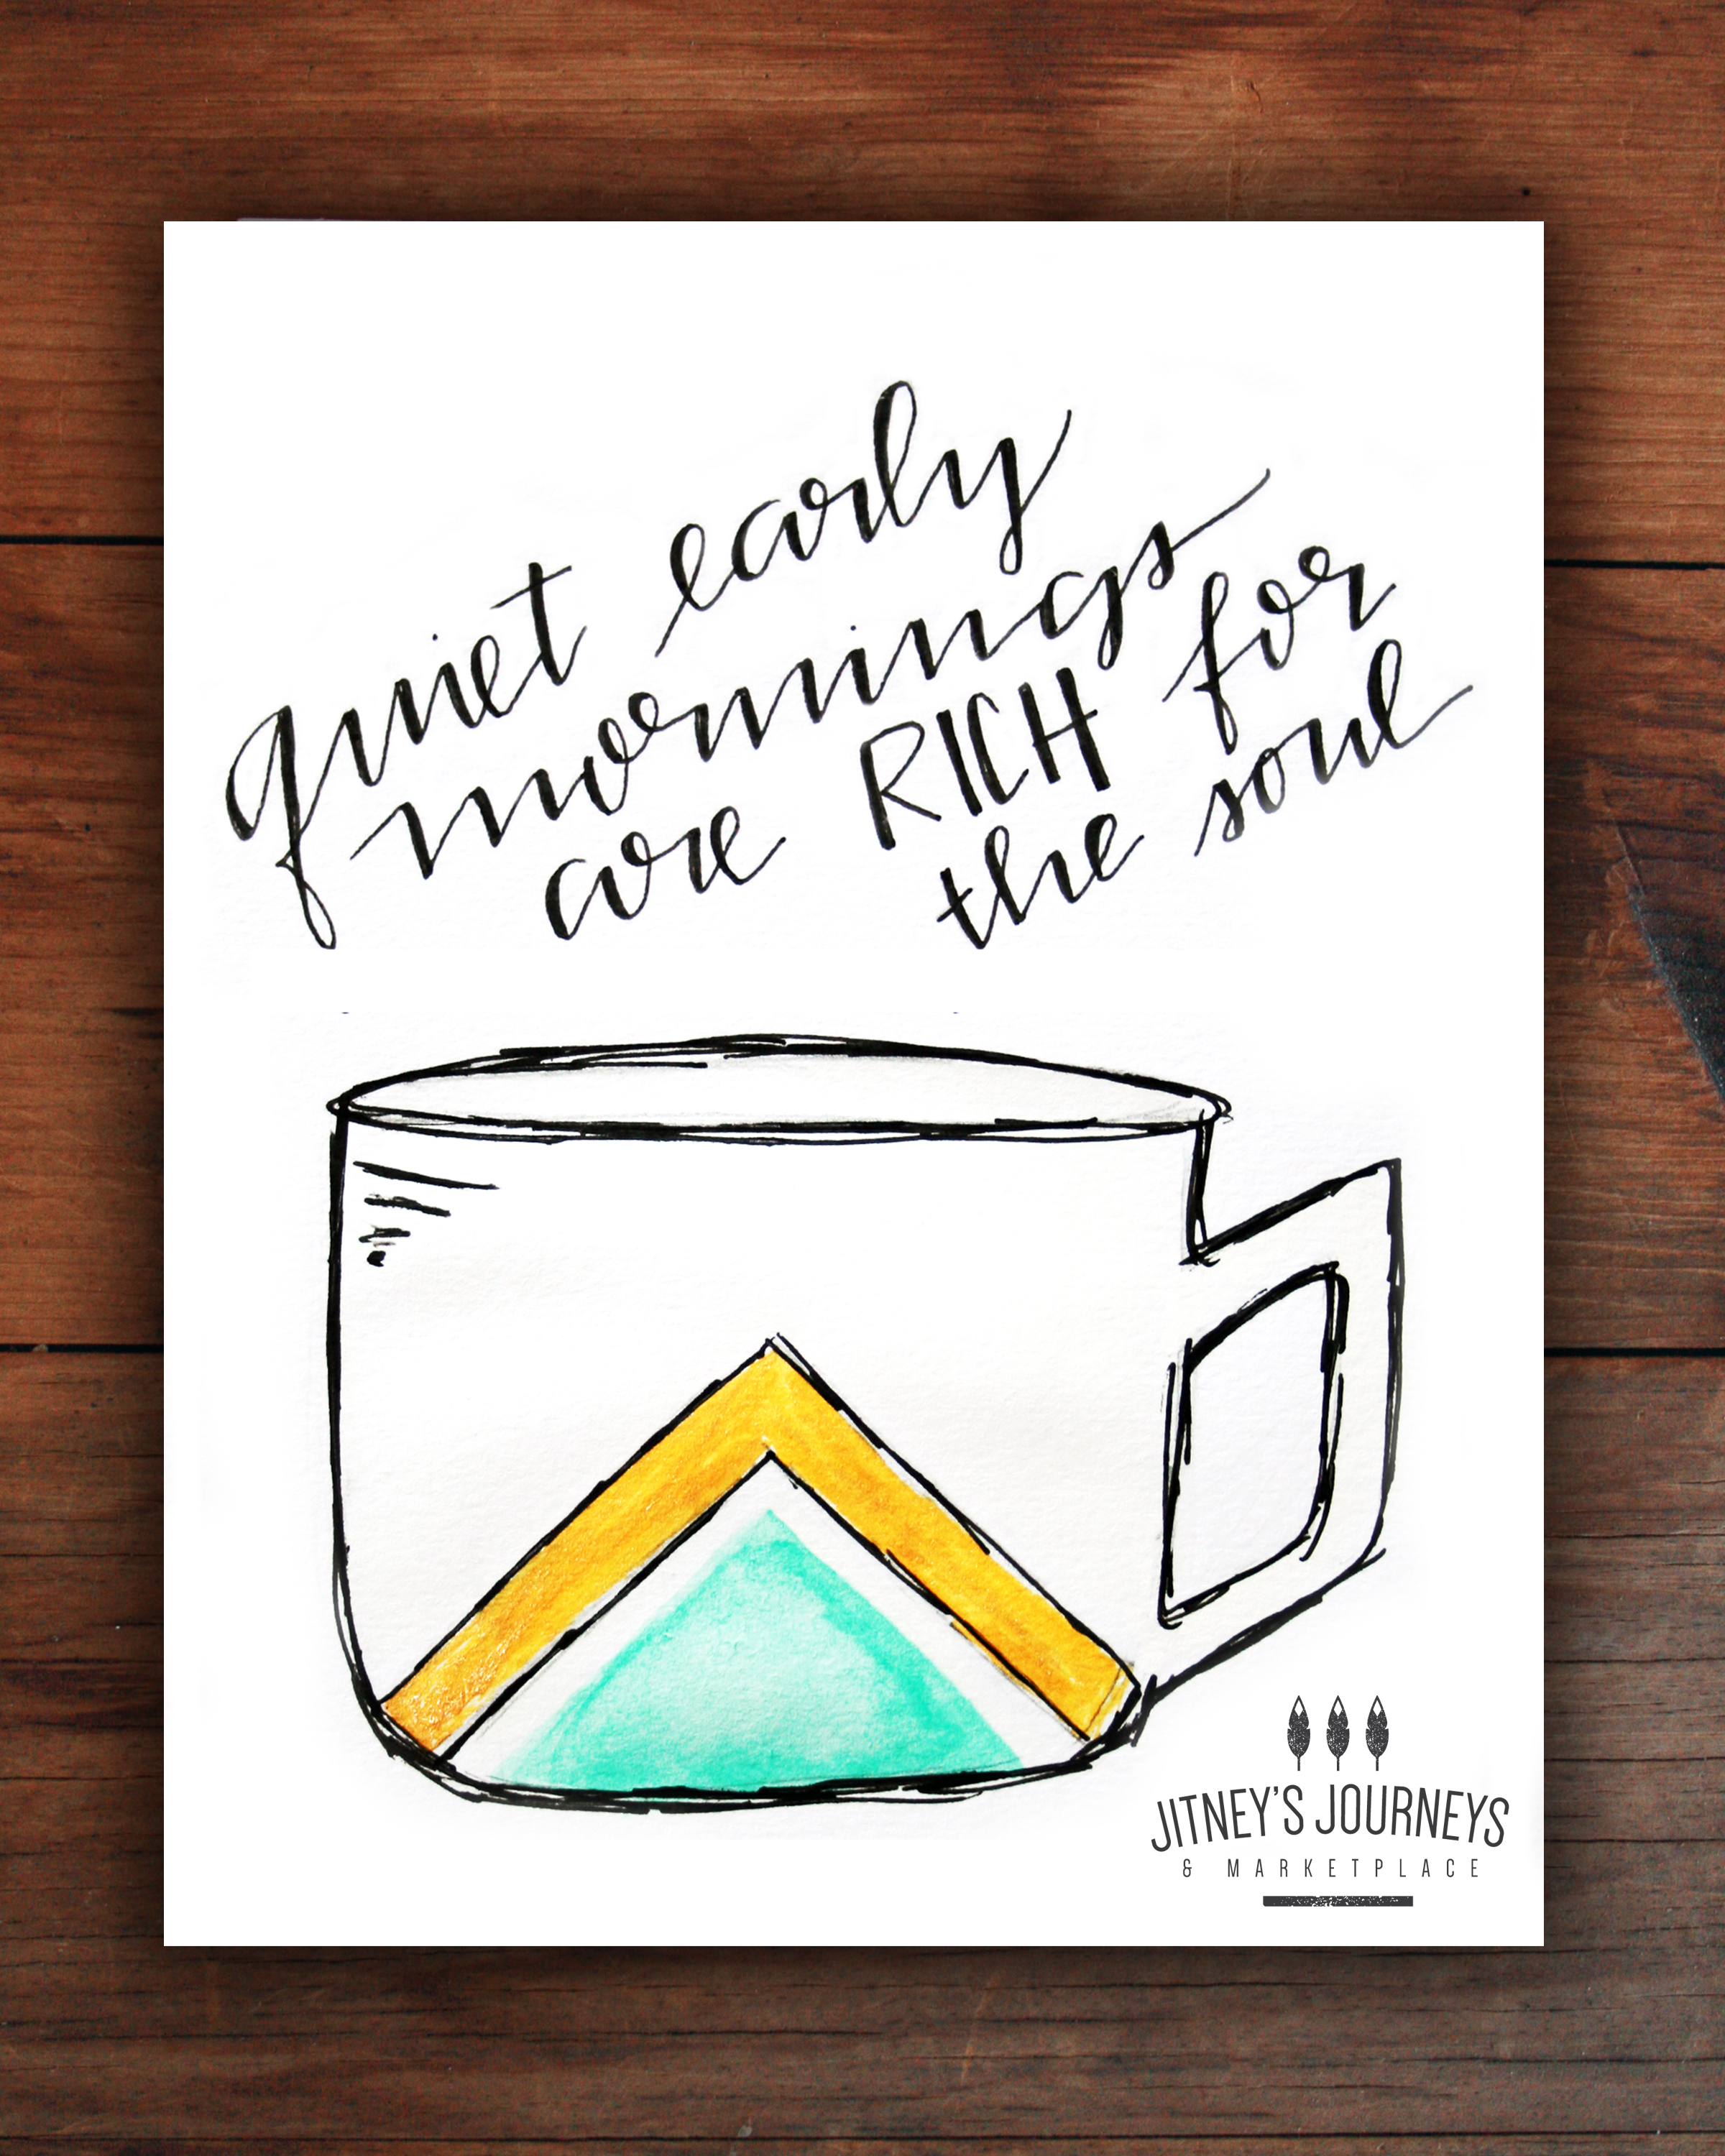 quiet early
mornings
are RICH for
the soul
JITNEY'S JOURNEYS
& MARKETPLACE